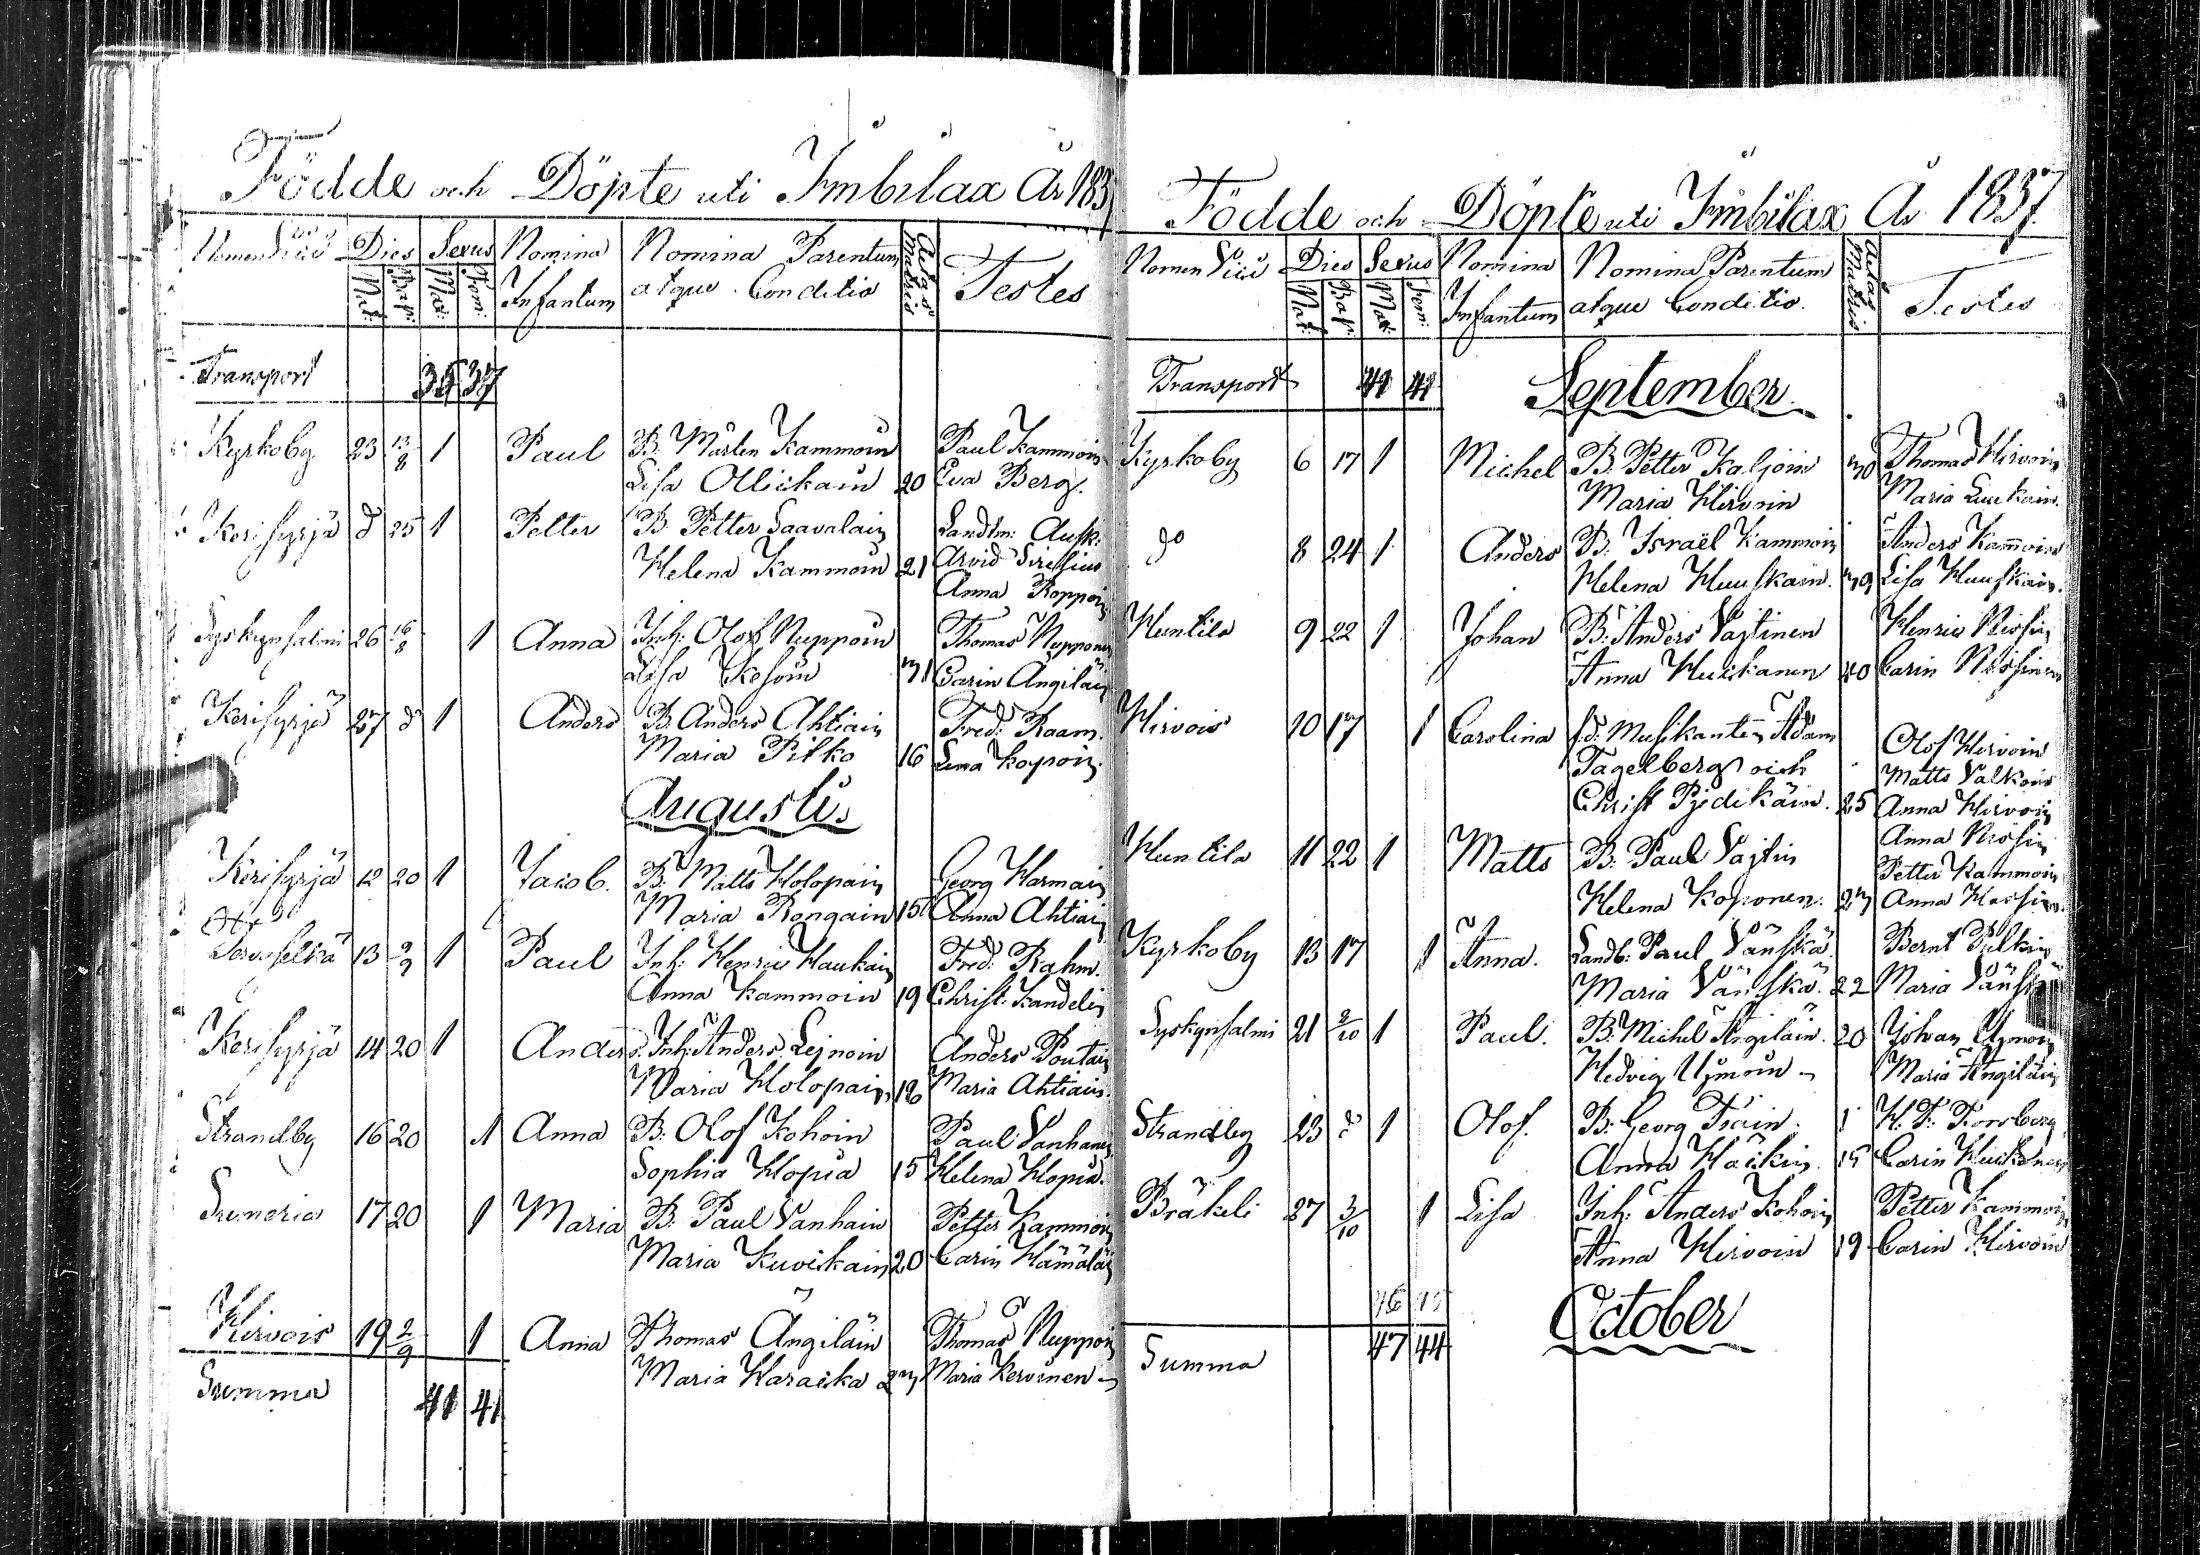 Födde och Döpte uti Imbilax År 183
Nomen Vici Dies Sexus Nomina Nomina Parentum Aetas Matris Testes
Nat: Bap: Mas: Fem: Infantum atque Conditio
Transport 35 37
Kyrkoby 23 13/8 1 Paul B. Mårten Kammoin Paul Kammoin
Lisa Ollickain 20 Eva Berg.
Kerisyrjä d 25 1 Petter B. Petter Saavalain Landtm: Ausk:
Helena Kammoin 21 Arvid Sirelius
Anna Roppoin
Syskynsalmi 26 16/8 1 Anna Inh: Olof Nuppoin Thomas Nuppoin
Lisa Kesoin 31 Carin Ängiläin
Kerisyrjä 27 d 1 Anders B. Anders Ahtiain Fred: Raam.
Maria Pitko 16 Lena Kopoin.
Augusti
Kerisyrjä 12 20 1 Jacob. B. Matts Holopain Georg Harmain
Maria Rongain 15 Anna Ahtiain
13 2/9 1 Paul Inh: Henric Haukain Fred: Rahm.
Anna Kammoin 19 Christ: Kandelin
Kerisyrjä 14 20 1 Anders. Inh: Anders Lejnoin Anders Poutain
Maria Holopain 18 Maria Ahtiain.
Strandby 16 20 1 Anna B. Olof Kohoin Paul Vanhain
Sophia Hopia 15 Helena Hopia.
Sumeria 17 20 1 Maria B. Paul Vanhain Petter Kammoin
Maria Kuvikain 20 Carin Hämäläin
Hirvois 19 2/9 1 Anna Thomas Ängiläin Thomas Nuppoin
Maria Karacka 27 Maria Kervinen
Summa 41 41
Födde och Döpte uti Imbilax År 1837.
Nomen Vici Dies Sexus Nomina Nomina Parentum Aetas Matris Testes
Nat: Bap: Mas: Fem: Infantum atque Conditio.
Transport 41 41 September.
Kyrkoby 6 17 1 Michel B. Petter Koljoin 30 Thomas Hirvoin
Maria Hirvoin Maria Luukain.
do 8 24 1 Anders B: Israël Kammoin Anders Kam̄oin
Helena Huuskain. 39 Lisa Huuskain.
Huntila 9 22 1 Johan B: Anders Vajtinen Henric Nissin
Anna Huickanen 40 Carin Nissinen
Hirvois 10 17 1 Carolina f.d. Musikanten Adam Olof Hirvoin
Tagelberg och Matts Valkoin
Christ Pjedikäin. 25 Anna Hirvoin
Huntila 11 22 1 Matts B. Paul Vajtin Anna Nissin
Petter Kammoin
Helena Koponen. 27 Anna Hassin.
Kyrkoby 13 17 1 Anna. Landb: Paul Vänskä Bernt Pulkin
Maria Vänskä. 22 Maria Vänskä
Syskynsalmi 21 2/10 1 Paul. B: Michel Ängiläin. 20 Johan Ujmoin
Hedvig Ujmoin Maria Ängiläin
Strandby 23 d 1 Olof. B: Georg Tsoin. H. F. Forsberg
Anna Häckin. 15 Carin Huickanen
Bräkeli 27 3/10 1 Lisa Inh: Anders Kohoin Petter Kammoin
Anna Hirvoin 19 Carin Hirvoin
October
Summa 47 44